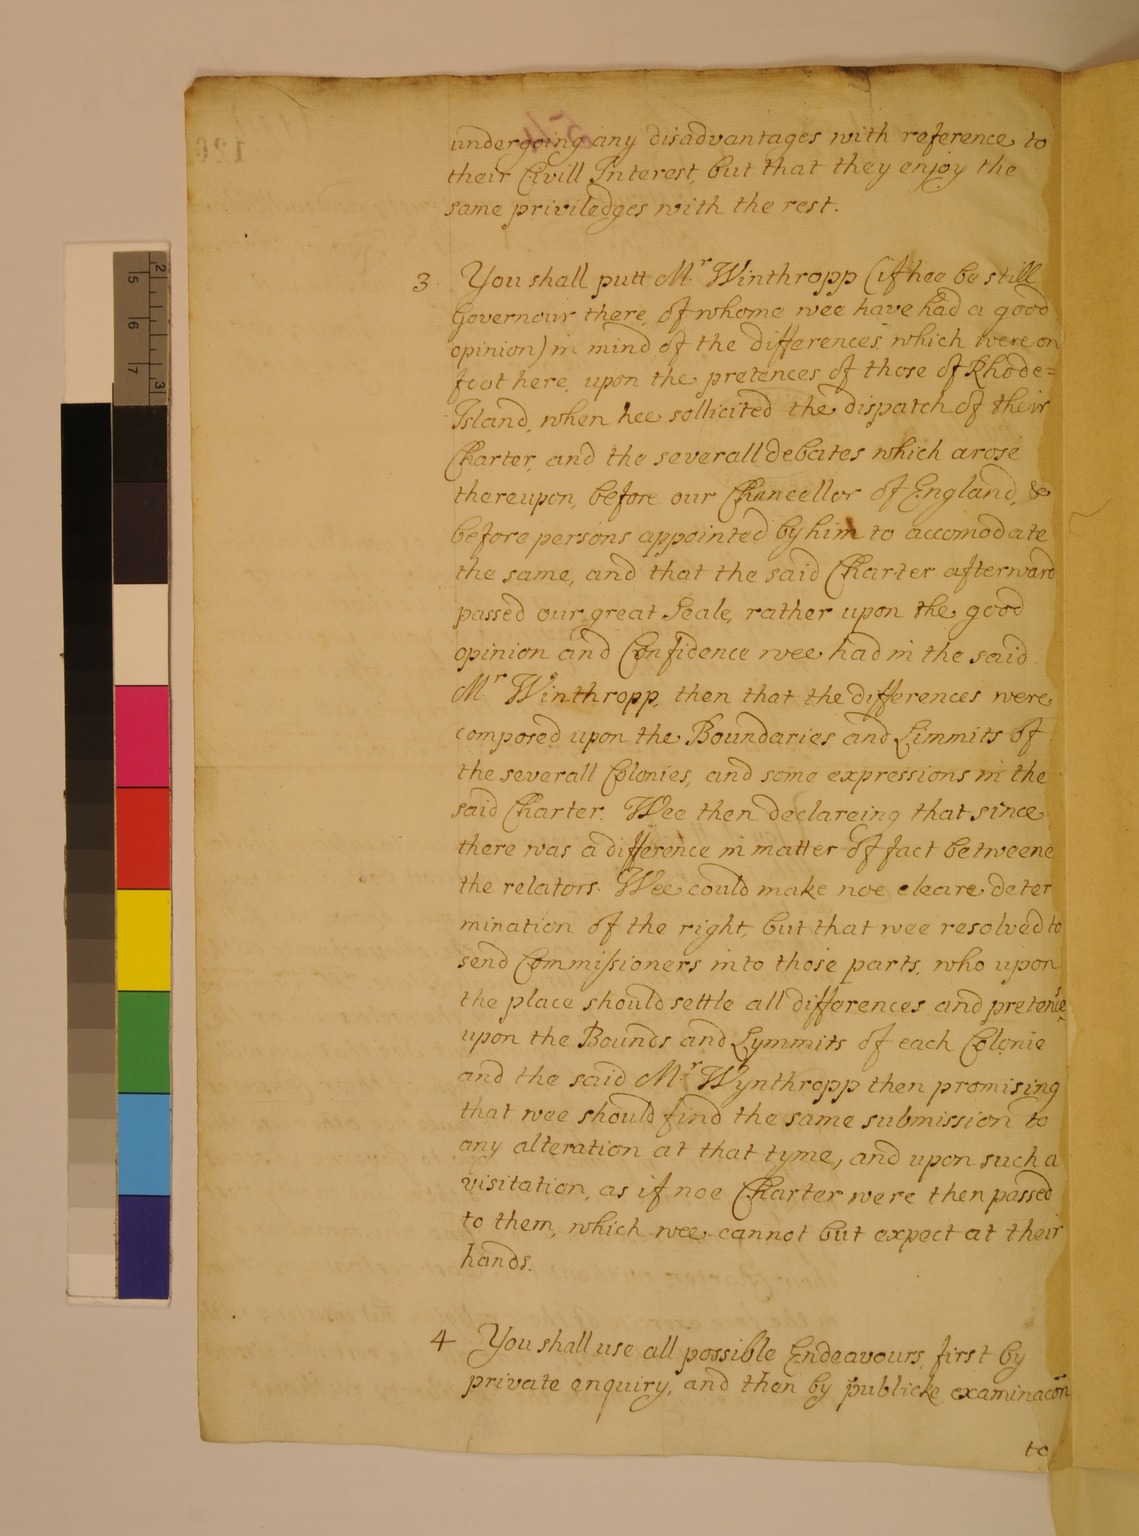 undergoing any disadvantages with reference to
their Civill Interest, but that they enjoy the
same priviledges with the rest.
3. You shall putt Mr Winthropp (if hee be still
Governour there, of whome wee have had a good
opinion) in mind of the differences, which were on
foot here, upon the pretences of those of Rhode=
Island, when hee sollicited the dispatch of their
Charter, and the severall debates which arose
thereupon, before our Chancellor of England, &
before persons appointed by him to accomodate
the same, and that the said Charter afterward
passed our great Seale, rather upon the good
opinion and Confidence wee had in the said
Mr Winthropp, then that the differences were
composed upon the Boundaries and Limmits of
the severall Colonies, and some expressions in the
said Charter. Wee then declareing that since
there was a difference in matter of fact betweene
the relators. Wee could make noe cleare deter
mination of the right, but that wee resolved to
send Commissioners into those parts, who upon
the place should settle all differences and pretences
upon the Bounds and Lymmits of each Colonie
and the said Mr Wynthropp then promising
that wee should find the same submission to
any alteration at that tyme, and upon such a
visitation, as if noe Charter were then passed
to them, which wee cannot but expect at their
hands.
4 You shall use all possible Endeavours, first by
private enquiry, and then by publicke examinacon
to
5
6
7
2
3